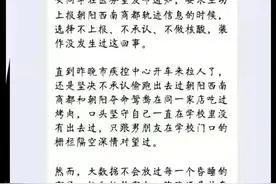 上报朝阳西南商都轨迹信息的时候，
选择不上报、不承认、不做核酸，装
作没发生过这回事。
直到昨晚市疾控中心开车来拉人了，
还是坚决不承认偷跑出去过朝阳西南
商都和朝夕命鸳鸯在同一家店吃过
烤肉，口头坚守自己一直在学校里没
有出去过，只跟男朋友在学校门口的
栅栏隔空深情对望过。
然而，大数据不会放过每一个昏睡的